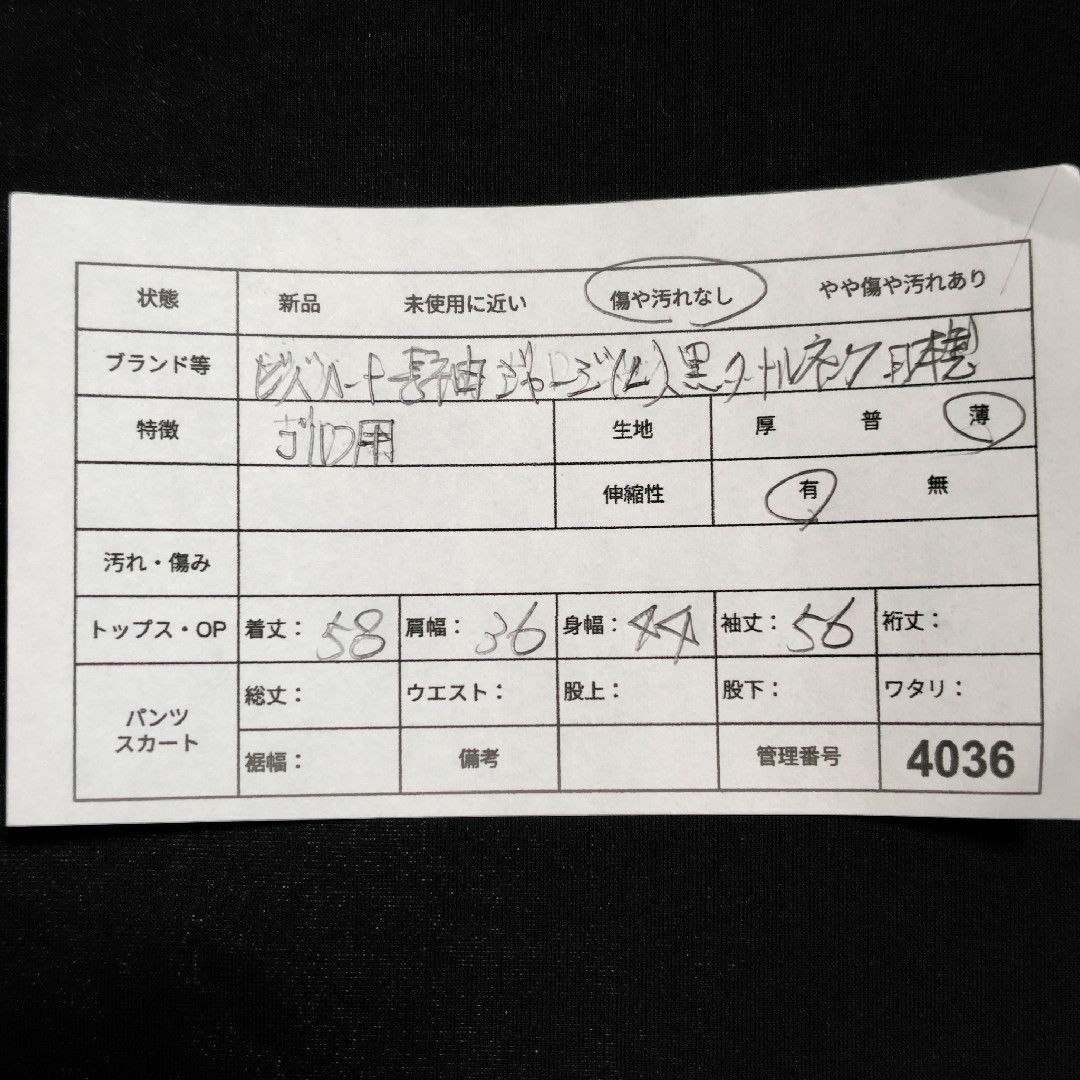 状態 新品 未使用に近い 傷や汚れなし やや傷や汚れあり
ブランド等 長袖ジャージ(L)黒タートルネック
特徴 ゴルフ用 生地 厚 普 薄
伸縮性 有 無
汚れ・傷み
トップス・OP 着丈: 58 肩幅: 36 身幅: 44 袖丈: 56 裄丈:
パンツ スカート 総丈: ウエスト: 股上: 股下: ワタリ:
裾幅: 備考 管理番号 4036